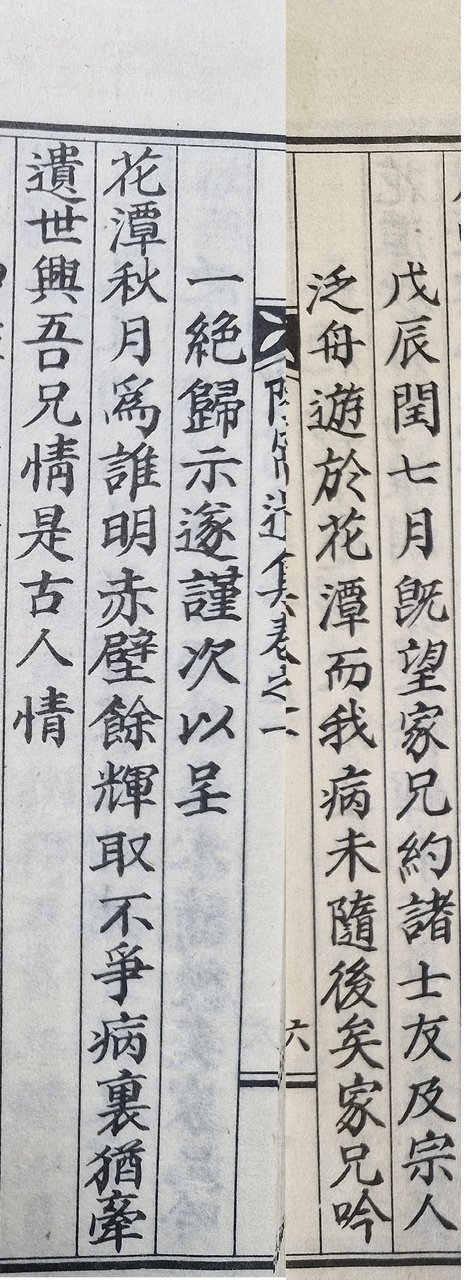 戊辰閏七月旣望家兄約諸士友及宗人
泛舟遊於花潭而我病未隨後矣家兄吟
六
一絶歸示遂謹次以呈
花潭秋月爲誰明赤壁餘輝取不爭病裏猶牽
遺世興吾兄情是古人情